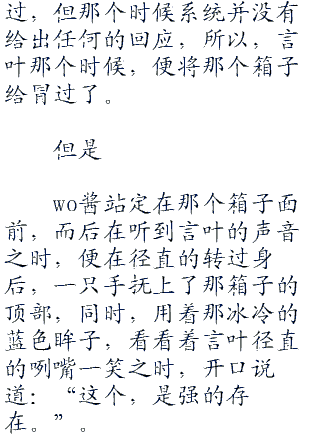 过，但那个时候系统并没有
给出任何的回应，所以，言
叶那个时候，便将那个箱子
给冒过了。
但是
wo酱站定在那个箱子面
前，而后在听到言叶的声音
之时，便在径直的转过身
后，一只手抚上了那箱子的
顶部，同时，用着那冰冷的
蓝色眸子，看看着言叶径直
的咧嘴一笑之时，开口说
道：“这个，是强的存
在。”。